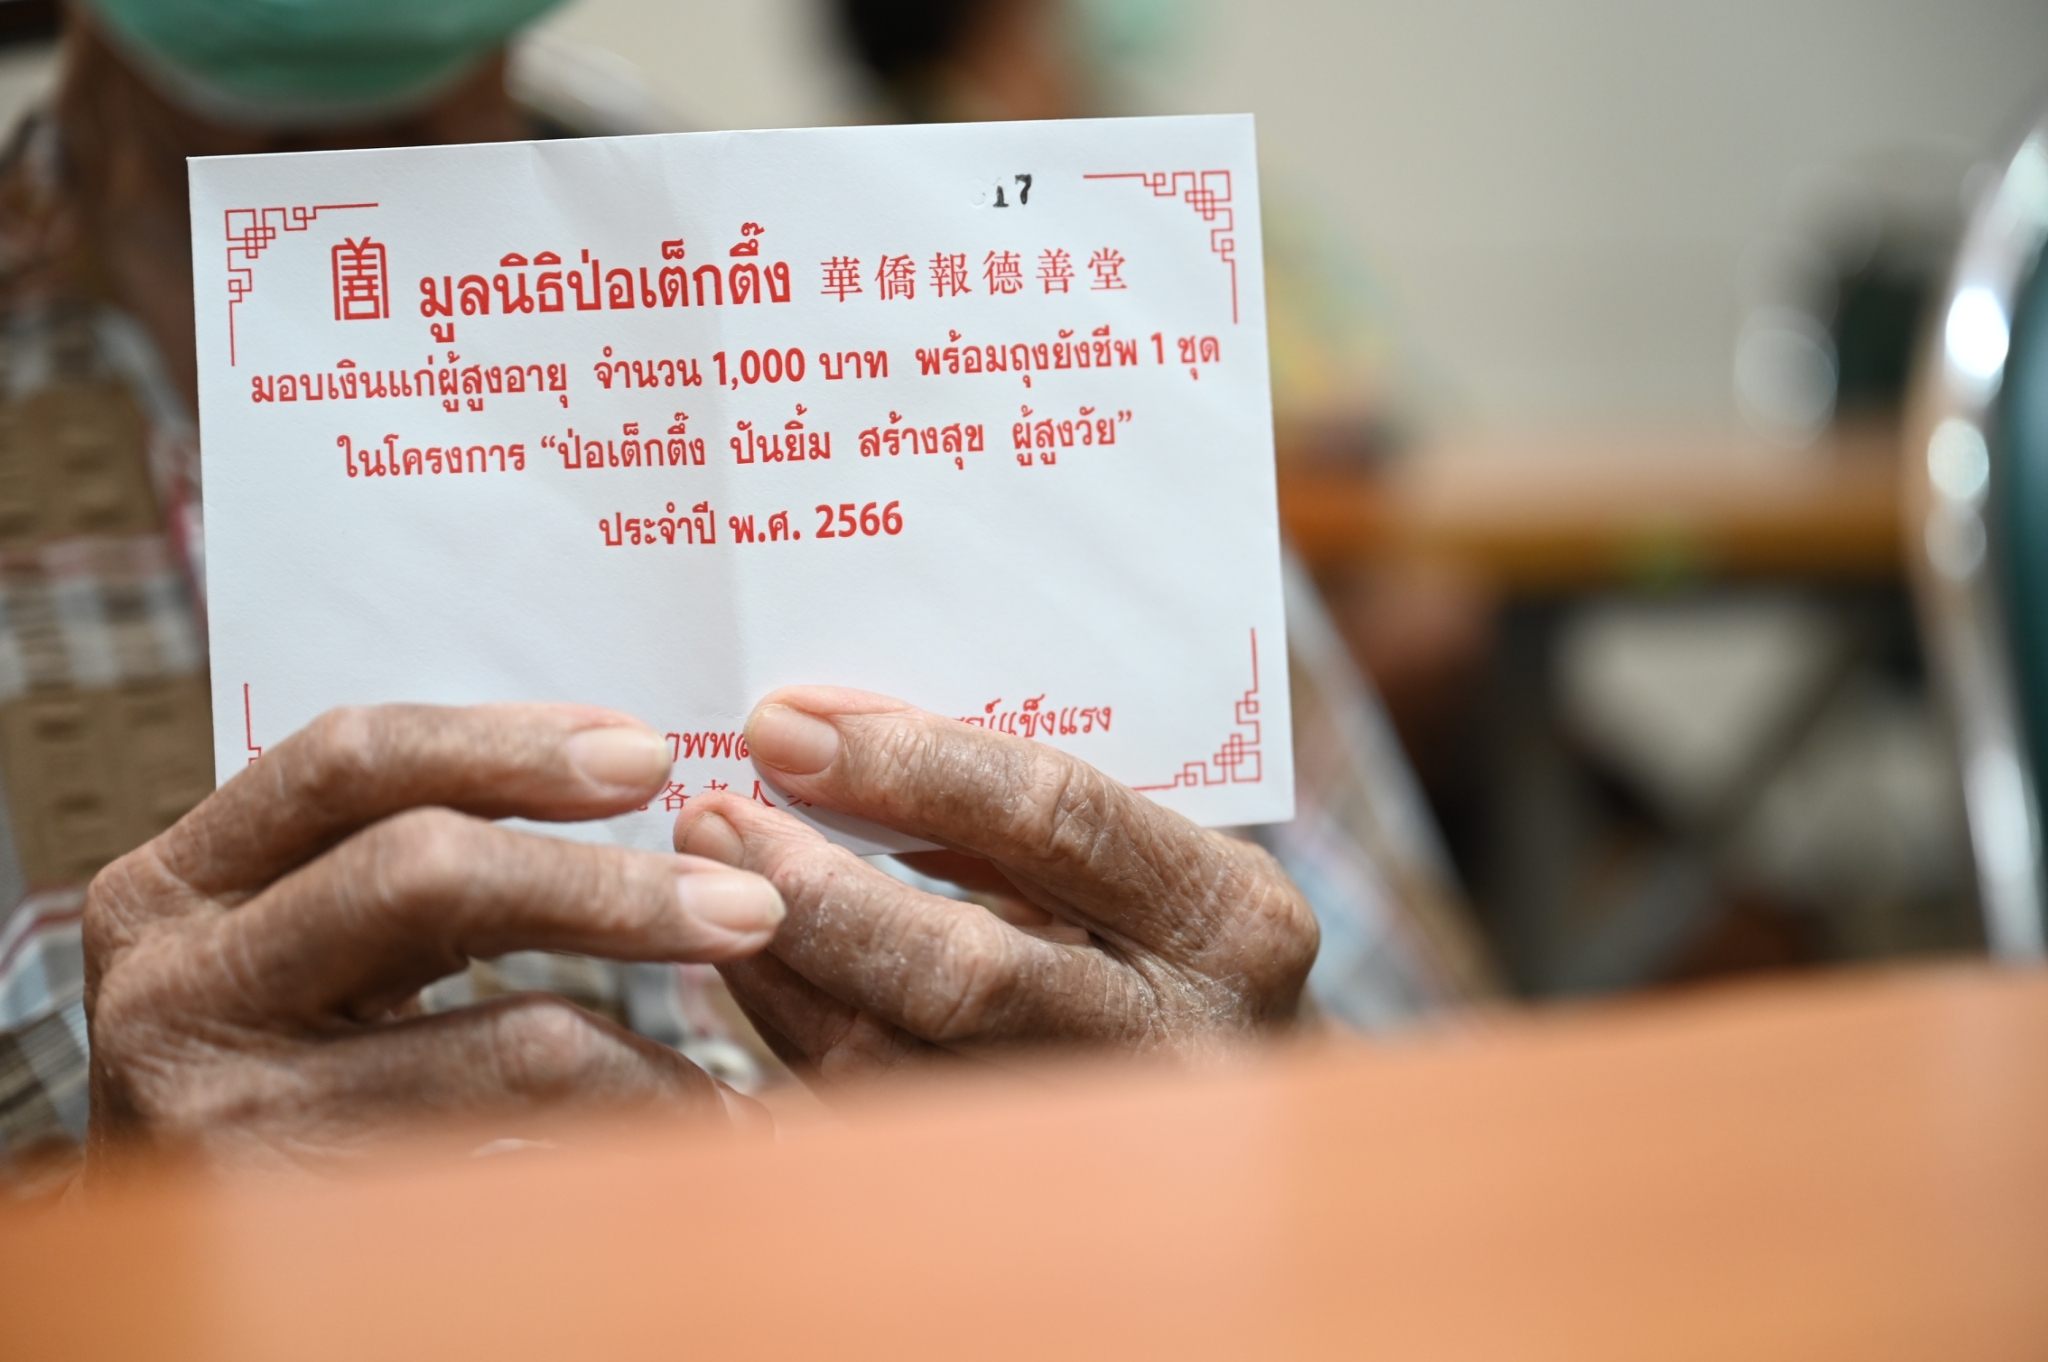 17
มูลนิธิป่อเต็กตึ๊ง 華僑報德善堂
มอบเงินแก่ผู้สูงอายุ จำนวน 1,000 บาท พร้อมถุงยังชีพ 1 ชุด
ในโครงการ “ป่อเต็กตึ๊ง ปันยิ้ม สร้างสุข ผู้สูงวัย”
ประจำปี พ.ศ. 2566
แข็งแรง
各老人